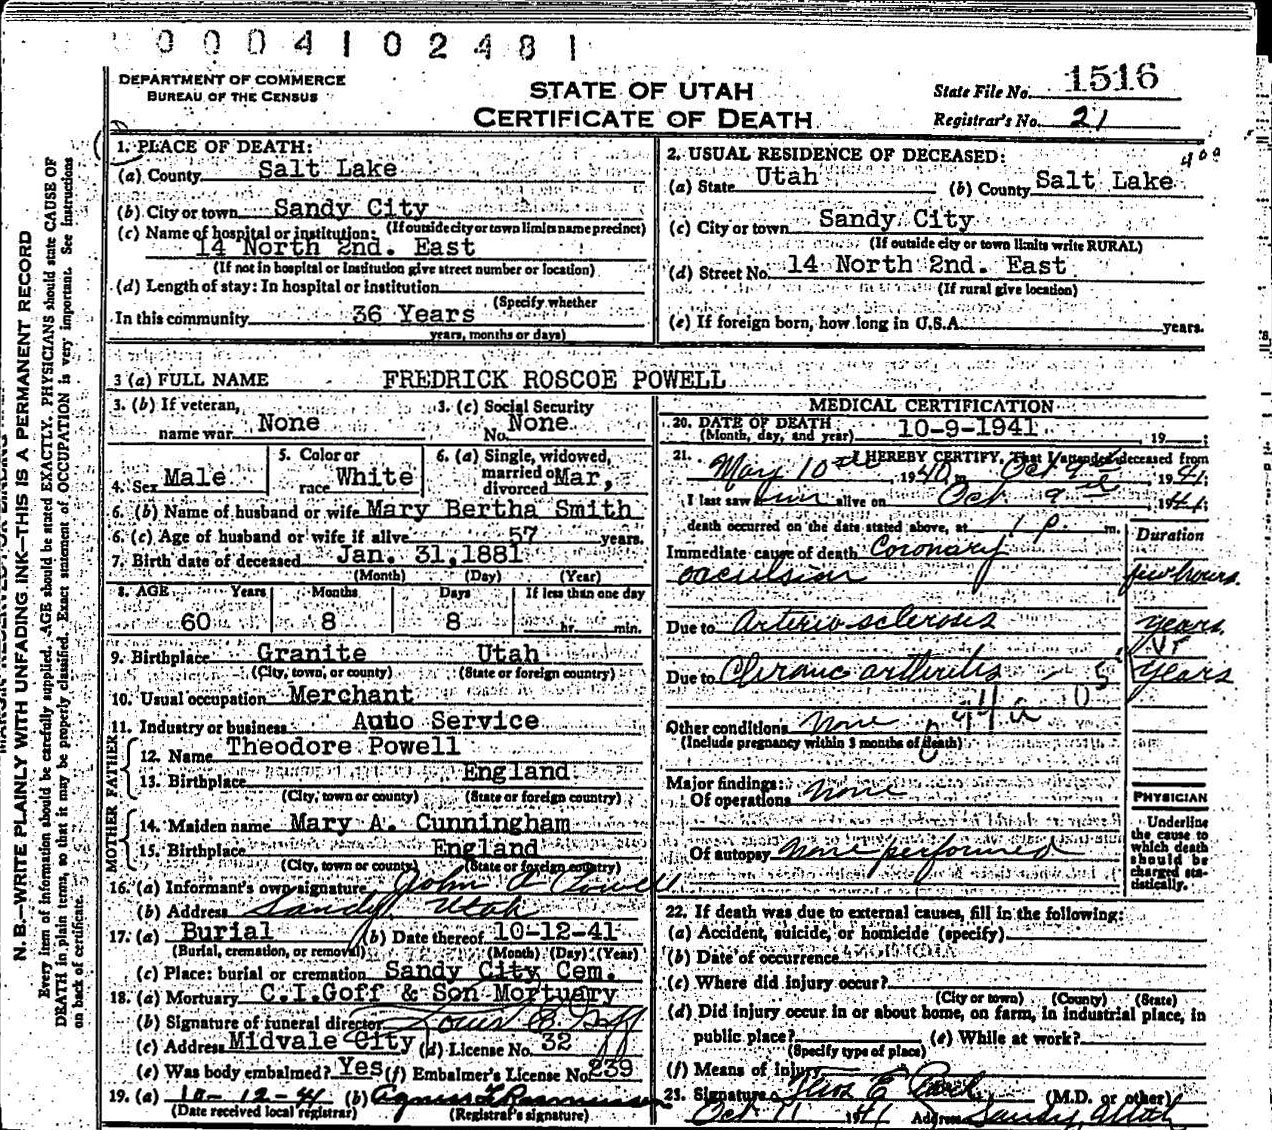 0 0 0 4 1 0 2 4 8 1
DEPARTMENT OF COMMERCE
BUREAU OF THE CENSUS
STATE OF UTAH
CERTIFICATE OF DEATH
State File No. 1516
Registrar's No. 21
N. B.—WRITE PLAINLY WITH UNFADING INK—THIS IS A PERMANENT RECORD
Every item of information should be carefully supplied. AGE should be stated EXACTLY. PHYSICIANS should state CAUSE OF
DEATH in plain terms, so that it may be properly classified. Exact statement of OCCUPATION is very important. See instructions
on back of certificate.
1. PLACE OF DEATH:
(a) County Salt Lake
(b) City or town Sandy City
(If outside city or town limits name precinct)
(c) Name of hospital or institution:
14 North 2nd. East
(If not in hospital or institution give street number or location)
(d) Length of stay: In hospital or institution
(Specify whether
In this community 36 Years
years, months or days)
2. USUAL RESIDENCE OF DECEASED:
(a) State Utah (b) County Salt Lake
(c) City or town Sandy City
(If outside city or town limits write RURAL)
(d) Street No. 14 North 2nd. East
(If rural give location)
(e) If foreign born, how long in U.S.A. years.
3 (a) FULL NAME FREDRICK ROSCOE POWELL
3. (b) If veteran,
name war None
3. (c) Social Security
No. None
4. Sex Male
5. Color or
race White
6. (a) Single, widowed,
married or
divorced Mar,
6. (b) Name of husband or wife Mary Bertha Smith
6. (c) Age of husband or wife if alive 57 years.
7. Birth date of deceased Jan. 31, 1881
(Month) (Day) (Year)
8. AGE Years Months Days If less than one day
60 8 8 hr. min.
9. Birthplace Granite Utah
(City, town, or county) (State or foreign country)
10. Usual occupation Merchant
11. Industry or business Auto Service
FATHER
12. Name Theodore Powell
13. Birthplace England
(City, town or county) (State or foreign country)
MOTHER
14. Maiden name Mary A. Cunningham
15. Birthplace England
(City, town or county) (State or foreign country)
16. (a) Informant's own signature John A Powell
(b) Address Sandy Utah
17. (a) Burial (b) Date thereof 10-12-41
(Burial, cremation, or removal) (Month) (Day) (Year)
(c) Place: burial or cremation Sandy City Cem.
18. (a) Mortuary C.I.Goff & Son Mortuary
(b) Signature of funeral director Louis E. Goff
(c) Address Midvale City (d) License No. 32
(e) Was body embalmed? Yes (f) Embalmer's License No. 239
19. (a) 10-12-41 (b) Agnes Rasmussen
(Date received local registrar) (Registrar's signature)
MEDICAL CERTIFICATION
20. DATE OF DEATH
(Month, day, and year) 10-9-1941, 19
21. I HEREBY CERTIFY, That I attended deceased from
May 10th 1940 to Oct 9th, 1941;
I last saw him alive on Oct 9th, 1941;
death occurred on the date stated above, at 1 P. m.
Duration
Immediate cause of death Coronary
occulsion few hours
Due to Arterio sclerosis years
Due to Chronic arthritis 5 years
94a
Other conditions none
(Include pregnancy within 3 months of death)
Major findings:
Of operations none
Of autopsy None performed
PHYSICIAN
Underline
the cause to
which death
should be
charged sta-
tistically.
22. If death was due to external causes, fill in the following:
(a) Accident, suicide, or homicide (specify)
(b) Date of occurrence
(c) Where did injury occur?
(City or town) (County) (State)
(d) Did injury occur in or about home, on farm, in industrial place, in
public place? (e) While at work?
(Specify type of place)
(f) Means of injury
23. Signature (M.D. or other)
Oct 11 1941 Address Sandy, Utah